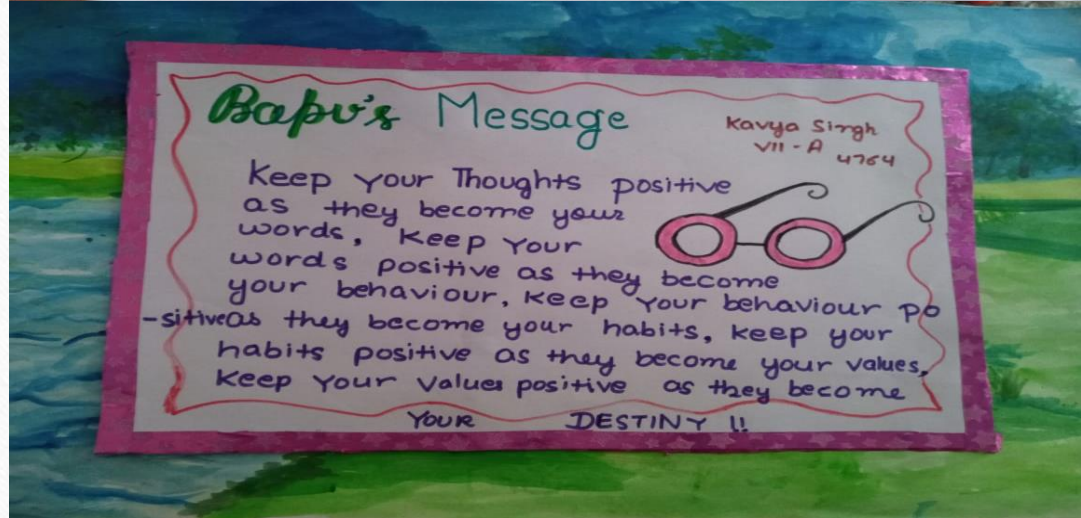 Bapu's Message
Kavya Singh
VII - A
4764
Keep Your Thoughts positive
as they become your
words, Keep Your
words positive as they become
your behaviour, Keep Your behaviour po
-sitive as they become your habits, keep your
habits positive as they become your values,
Keep Your Values positive as they become
YOUR DESTINY !!